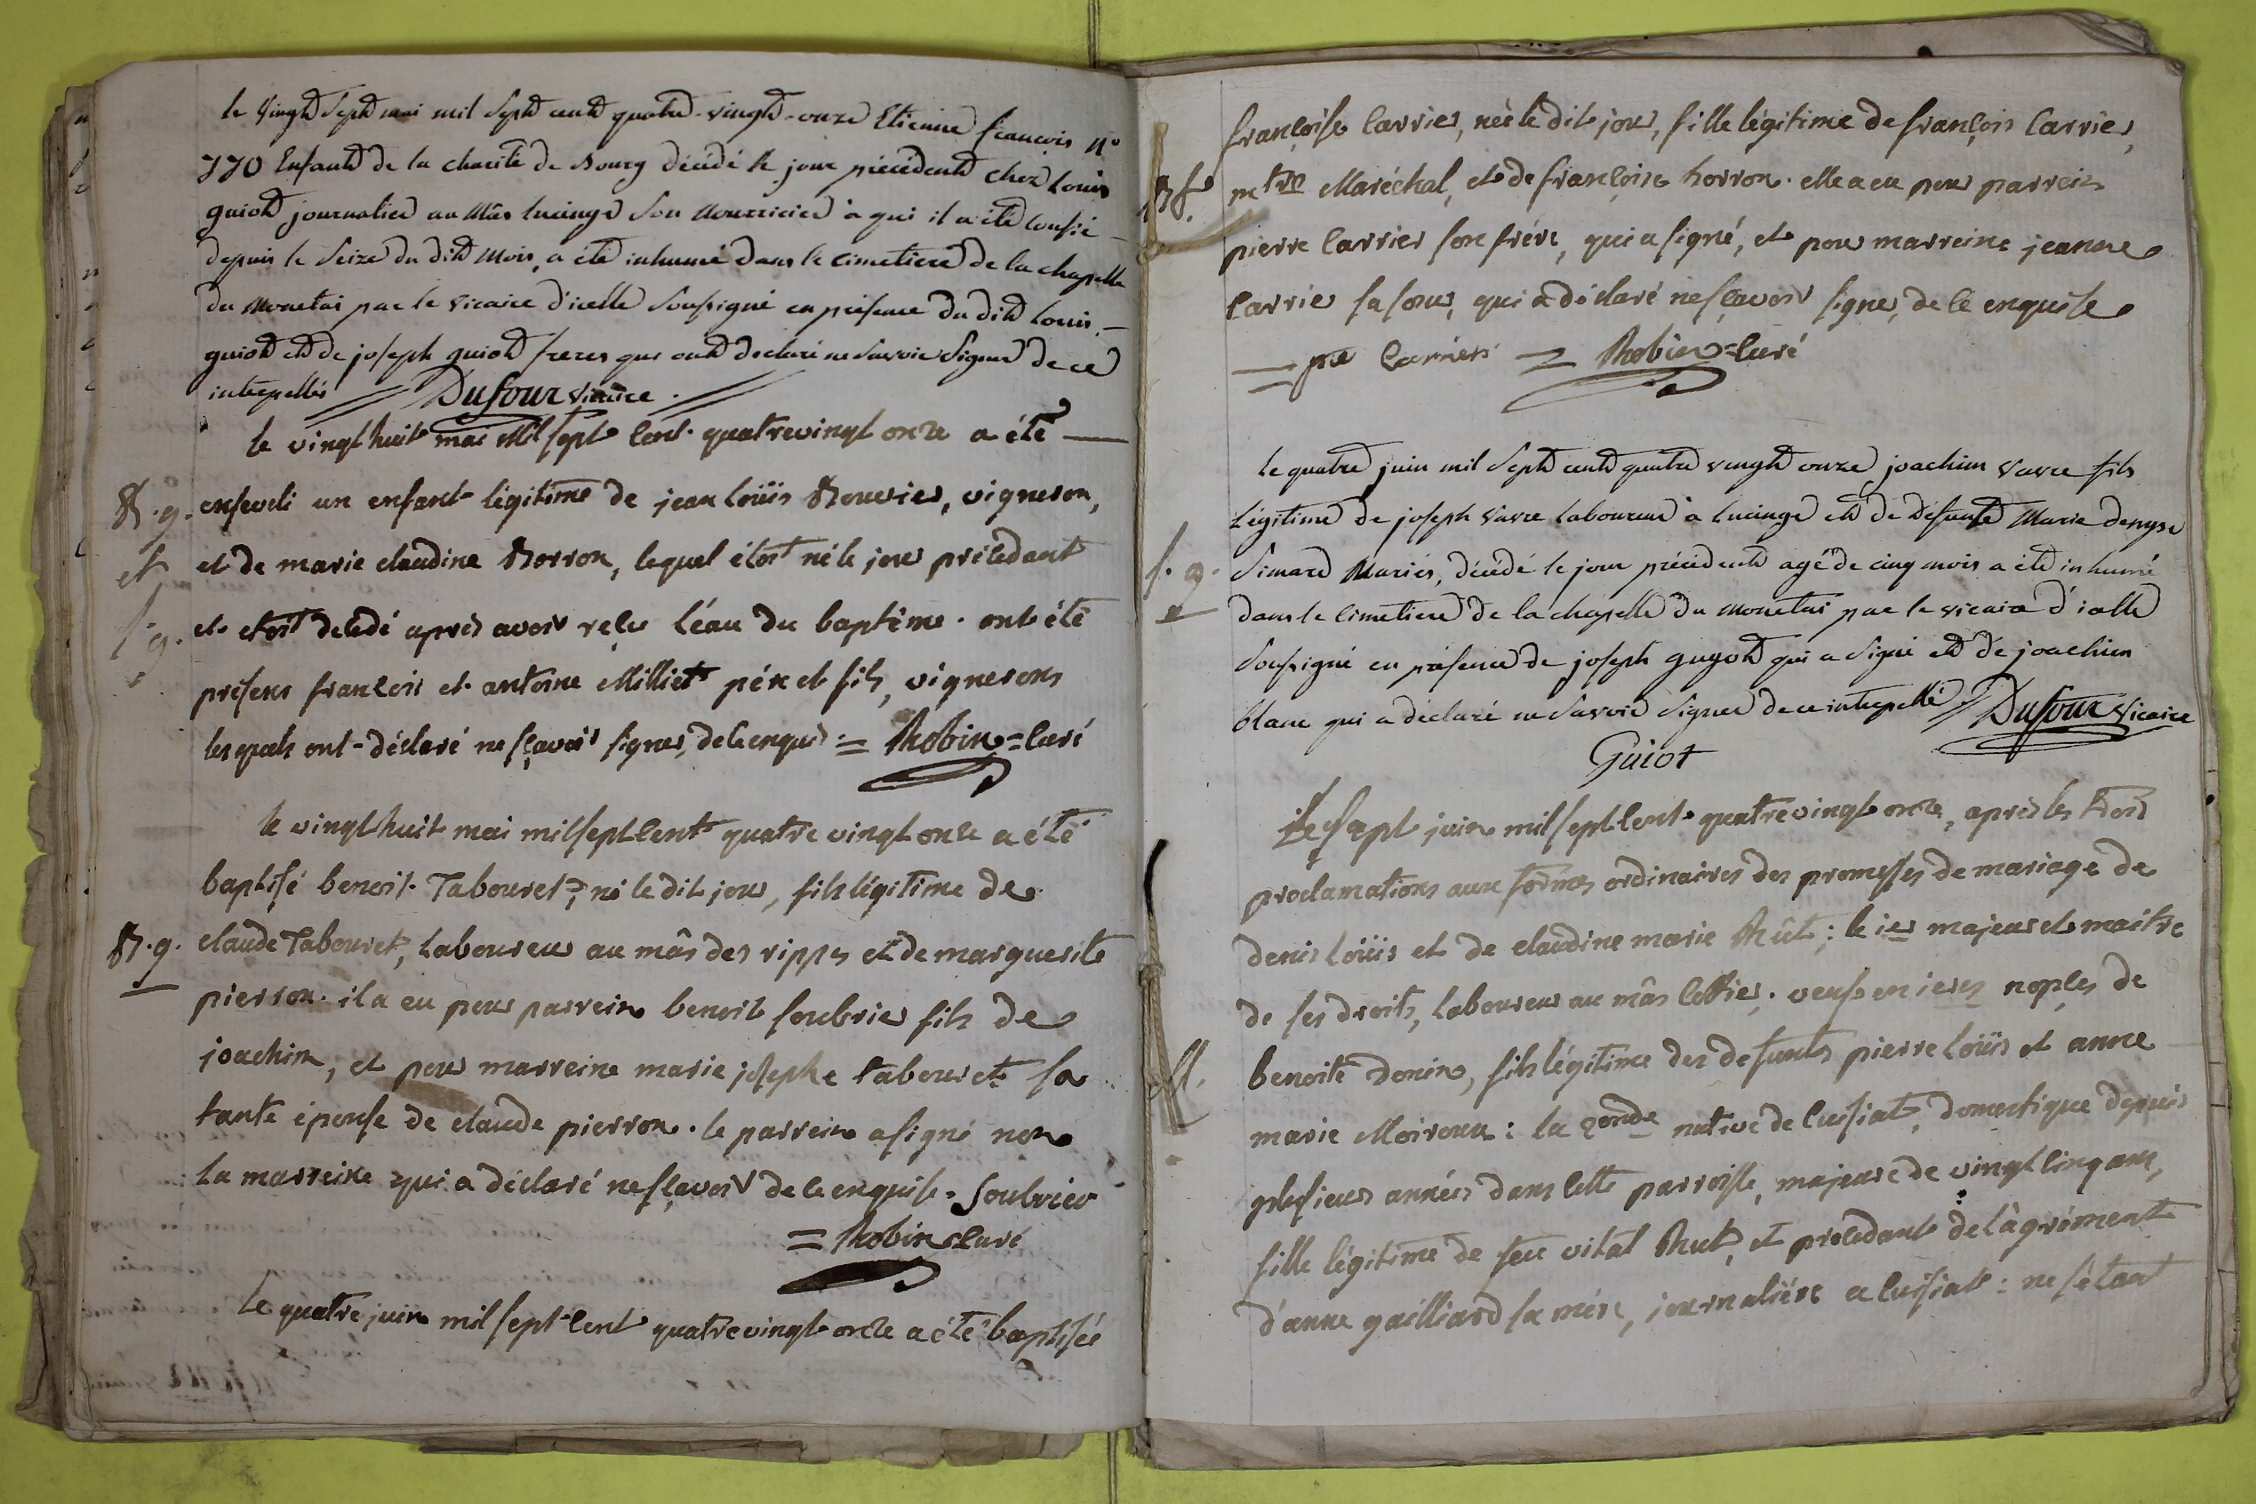 le vingt Sept mai mil Sept cent quatre-vingt-onze Etienne françois N°
770 Enfant de la charité de Bourg décédé le jour précédent chez Louis
guiot journalier au Mâs lucinge Son Nourricier à qui il a été confié
depuis le Seize du dit Mois, a été inhumé dans le cimetiere de la chapelle
du Monetai par le vicaire d'icelle Soussigné en présence du dit Louis
guiot et de joseph guiot freres qui ont declaré ne Savoir Signer de ce
interpellés Dufour vicaire.
le vingt huit mai Mil sept cent quatrevingt onze a été
B.g. enseveli un enfant légitime de jean Loüis Bouvier, vigneron,
et et de marie claudine Borron, lequel étoit né le jour précedant
S.g. et etoit decedé après avoir reçu l'éau du baptême. ont été
présens françois et antoine Milliet pére et fils, vignerons
lesquels ont déclaré ne sçavoir signer, de ce enquis = Robin = curé
le vingt huit mai mil sept cent quatre vingt onze a été
baptisé benoit Tabouret, né le dit jour, fils légitime de
B.g. claude Tabouret, laboureur au mâs des rippes et de marguerite
pierron. il a eu pour parrein benoit soubrier fils de
joachim, et pour marreine marie josephe tabouret sa
tante épouse de claude pierron. le parrein a signé non
la marreine qui a déclaré ne sçavoir de ce enquise. Soubrier
= Robin curé
Le quatre juin mil sept cent quatrevingt onze a été baptisée
françoise Carrier, née le dit jour, fille légitime de françois Carrier,
B.f. mtre Maréchal, et de françoise horron. elle a eu pour parrein
pierre Carrier son frére, qui a signé, et pour marreine jeanne
Carrier sa sœur, qui a déclaré ne sçavoir signer, de ce enquise
pre Carrier = Robin = Curé
Le quatre juin mil Sept cent quatre vingt onze joachim Vavre fils
légitime de joseph Vavre laboureur à lucinge et de défunte Marie denyse
S.g. Simard Mariés, décédé le jour précédent agé de cinq mois a été inhumé
dans le cimetiere de la chapelle du Monetai par le vicaire d'icelle
Soussigné en présence de joseph guyot qui a Signé et de joachim
blanc qui a déclaré ne Savoir Signer de ce interpellé Dufour Vicaire
Guiot
Le sept juin mil sept cent quatrevingt onze, après les trois
proclamations aux formes ordinaires des promesses de mariage de
denis Loüis et de claudine marie Rût; le ier majeur et maitre
de ses droits, laboureur au mâs; veuf en ieres nopces de
M. benoite donin, fils légitime des defunts pierre Loüis et anne
marie Moiroux: la 2onde native de Cuisiat, domestique depuis
plusieurs années dans cette parroisse, majeure de vingt cinq ans,
fille légitime de feu vital Rut, et procedant de l'agrément
d'anne gailliard sa mére, journaliére a Cuisiat: ne s'étant